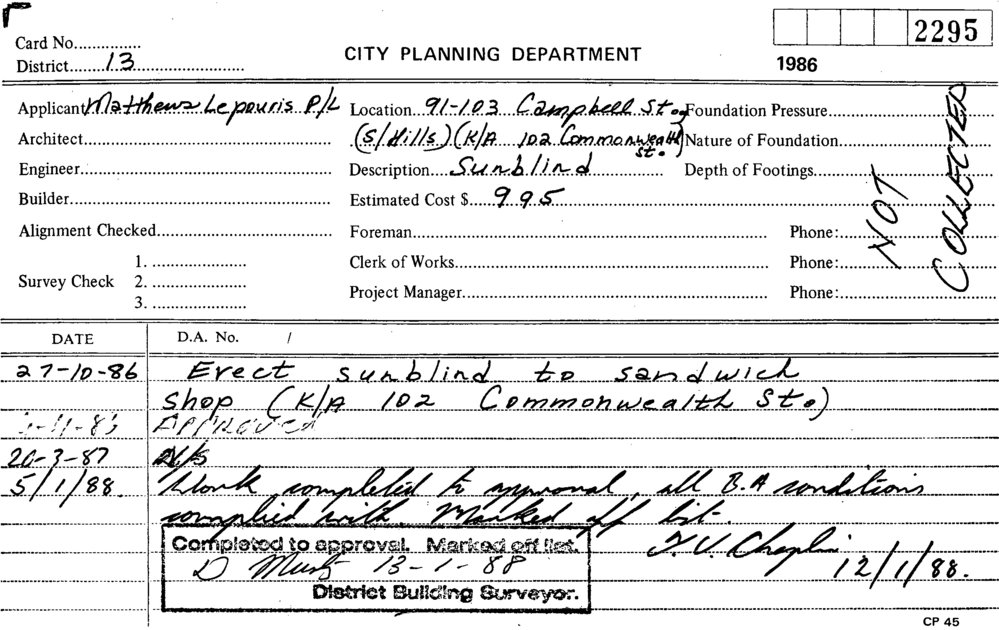 2295
Card No.
CITY PLANNING DEPARTMENT
District 13
1986
Applicant Matthews Lepouris P/L Location 91-103 Campbell St. Foundation Pressure
Architect (S/Hills) (K/A 102 Commonwealth St.) Nature of Foundation
Engineer Description Sunblind Depth of Footings
Builder Estimated Cost $ 995
NOT COLLECTED
Alignment Checked Foreman Phone:
Survey Check 1. Clerk of Works Phone:
2.
3. Project Manager Phone:
DATE D.A. No. /
27-10-86 Erect sunblind to sandwich
shop (K/A 102 Commonwealth St.)
APPROVED
20-3-87 N/S
5/1/88. Work completed to approval, all B.A conditions
complied with. Marked off list.
Completed to approval. Marked off list.
D 13-1-88
District Building Surveyor.
T. V. Chaplin
12/1/88.
CP 45